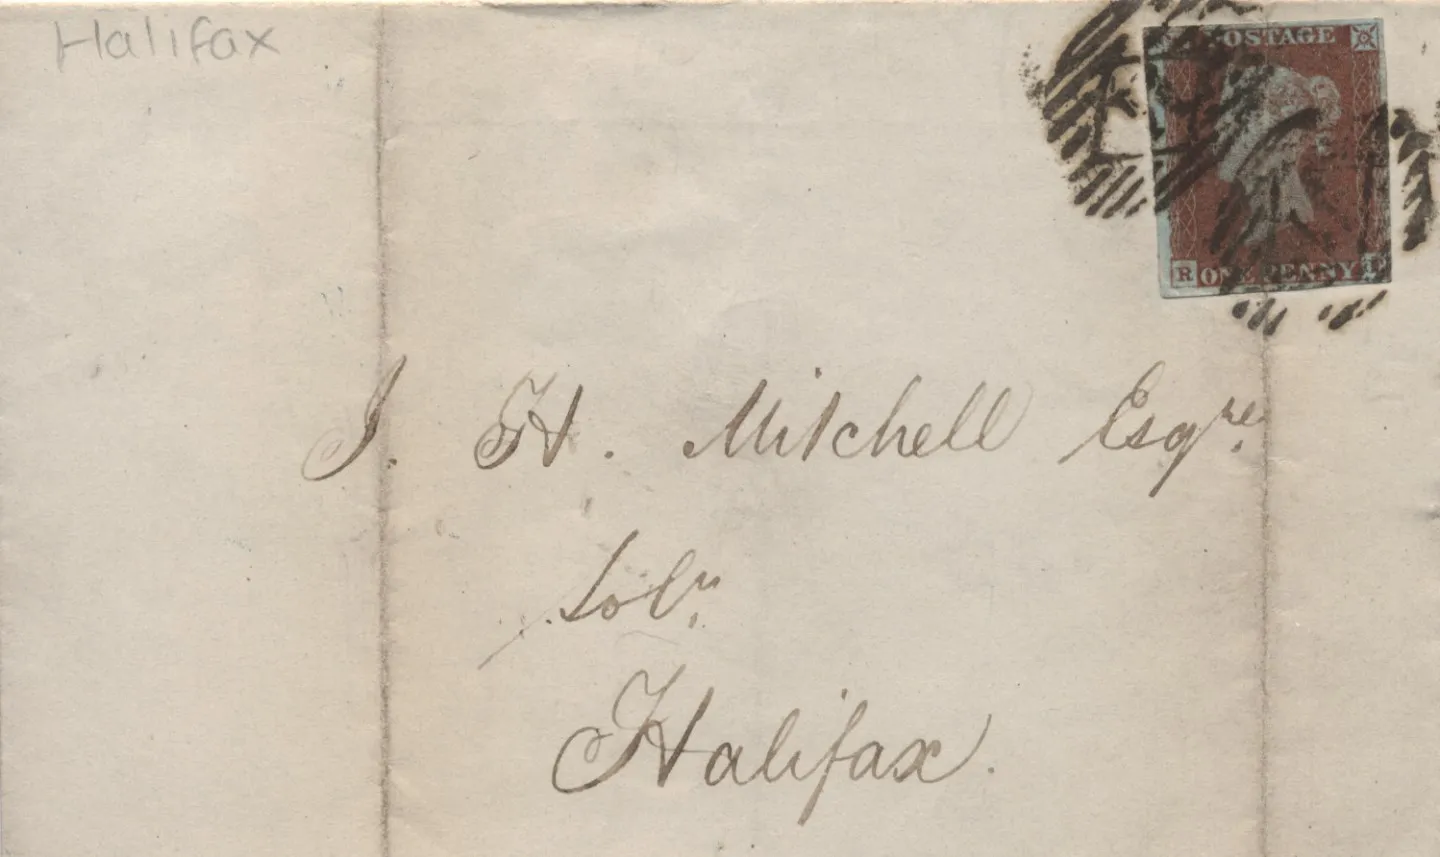 Halifax
POSTAGE
R ONE PENNY
J. H. Mitchell Esqre.
Solr.
Halifax.